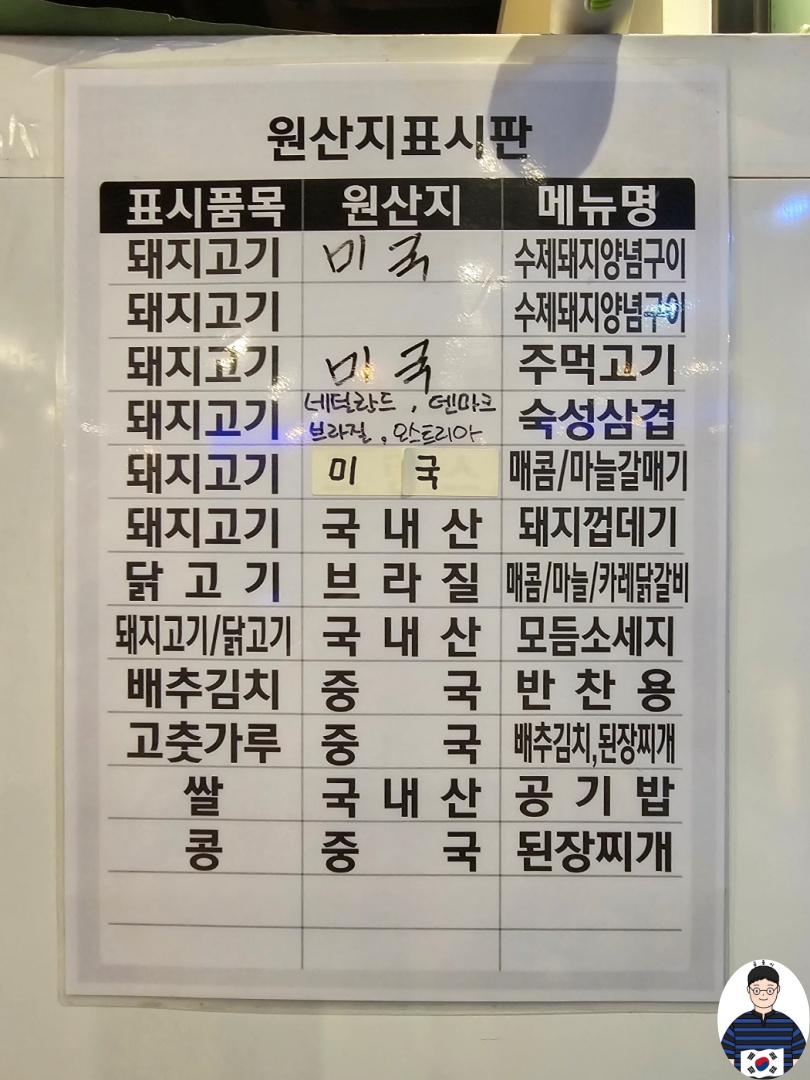 원산지표시판
표시품목 원산지 메뉴명
돼지고기 미국 수제돼지양념구이
돼지고기 수제돼지양념구이
돼지고기 미국 주먹고기
돼지고기 네덜란드, 덴마크 브라질, 오스트리아 숙성삼겹
돼지고기 미 국 매콤/마늘갈매기
돼지고기 국 내 산 돼지껍데기
닭 고 기 브 라 질 매콤/마늘/카레닭갈비
돼지고기/닭고기 국 내 산 모듬소세지
배추김치 중 국 반 찬 용
고춧가루 중 국 배추김치,된장찌개
쌀 국 내 산 공 기 밥
콩 중 국 된장찌개